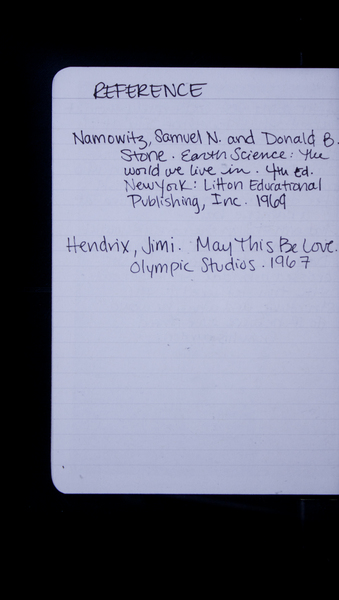 REFERENCE
Namowitz, Samuel N. and Donald B.
Stone. Earth Science: The
world we live in. 4th ed.
New York: Litton Educational
Publishing, Inc. 1969
Hendrix, Jimi. May This Be Love.
Olympic Studios. 1967